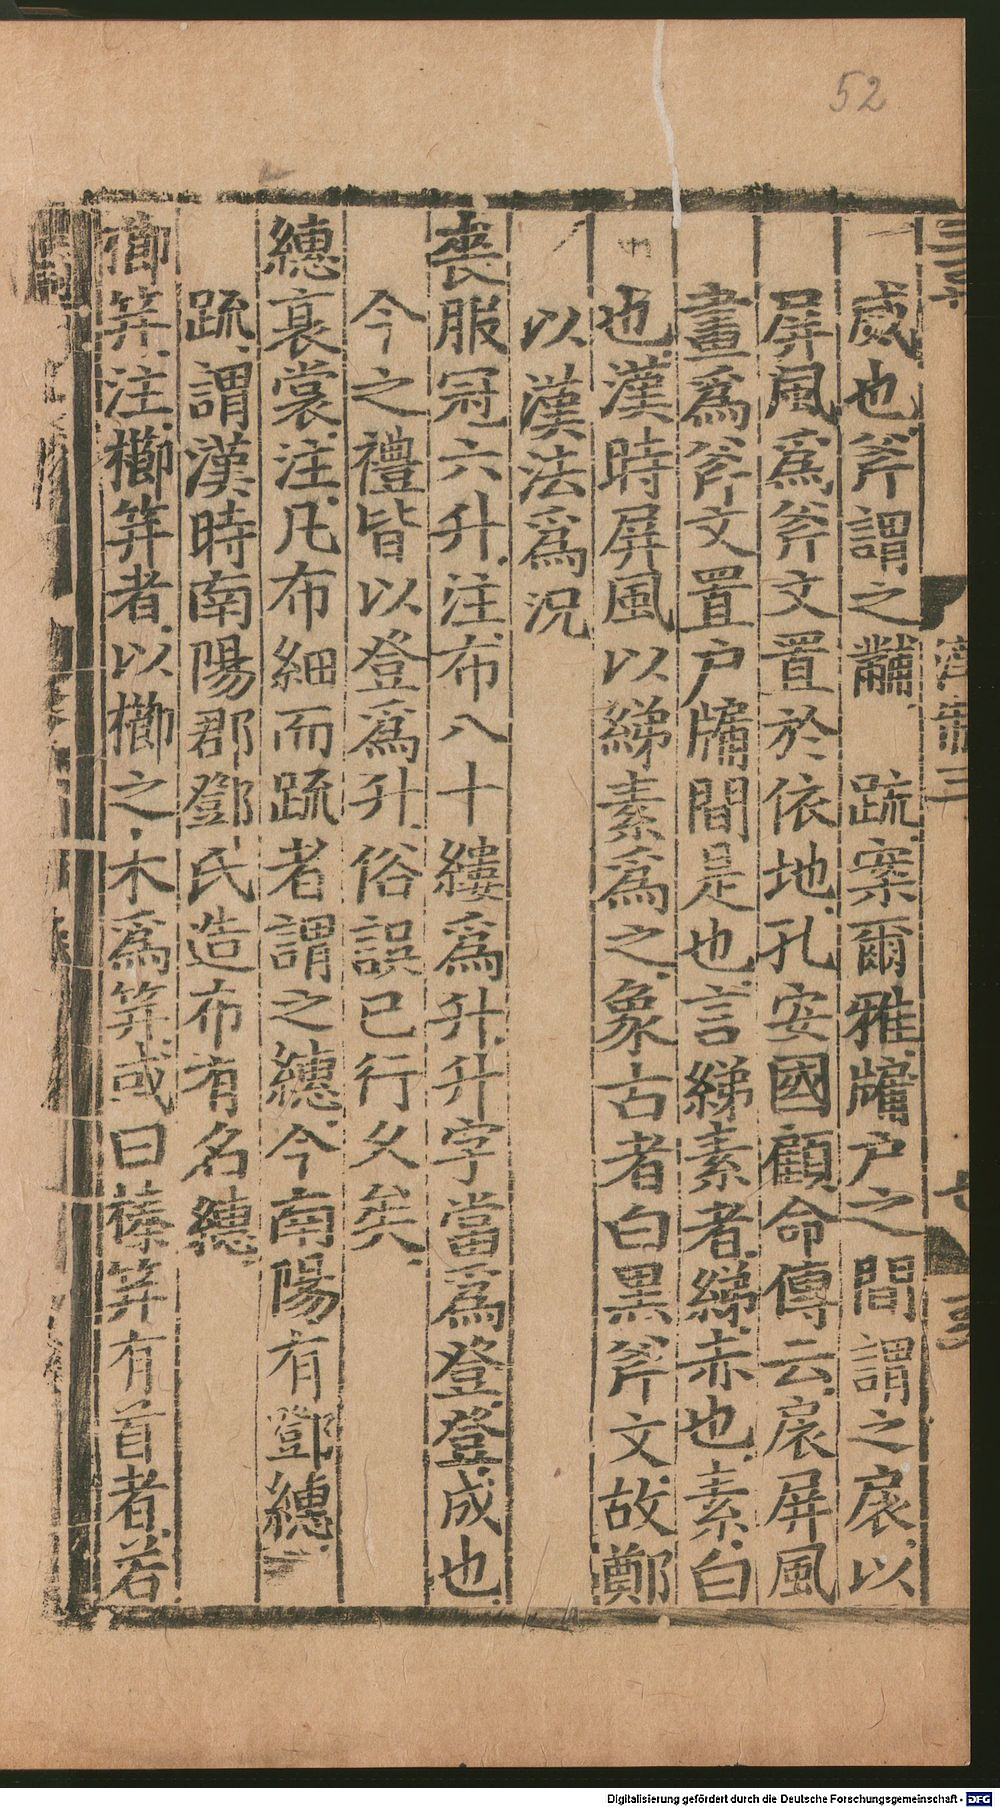 52
威也斧謂之黼 䟽案爾雅牖戶之間謂之扆以
屏風爲斧文置於依地孔安國顧命傳云扆屏風
畫爲斧文置戶牖間是也言綈素者綈赤也素白
也漢時屏風以綈素爲之象古者白黑斧文故鄭
以漢法爲況
喪服冠六升注布八十縷爲升升字當爲登登成也
今之禮皆以登爲升俗誤已行久矣
繐衰裳注凡布細而䟽者謂之繐今南陽有鄧繐
䟽謂漢時南陽郡鄧氏造布有名繐
櫛笄注櫛笄者以櫛之木爲笄或曰榛笄有首者若
漢制三
七
Digitalisierung gefördert durch die Deutsche Forschungsgemeinschaft - DFG